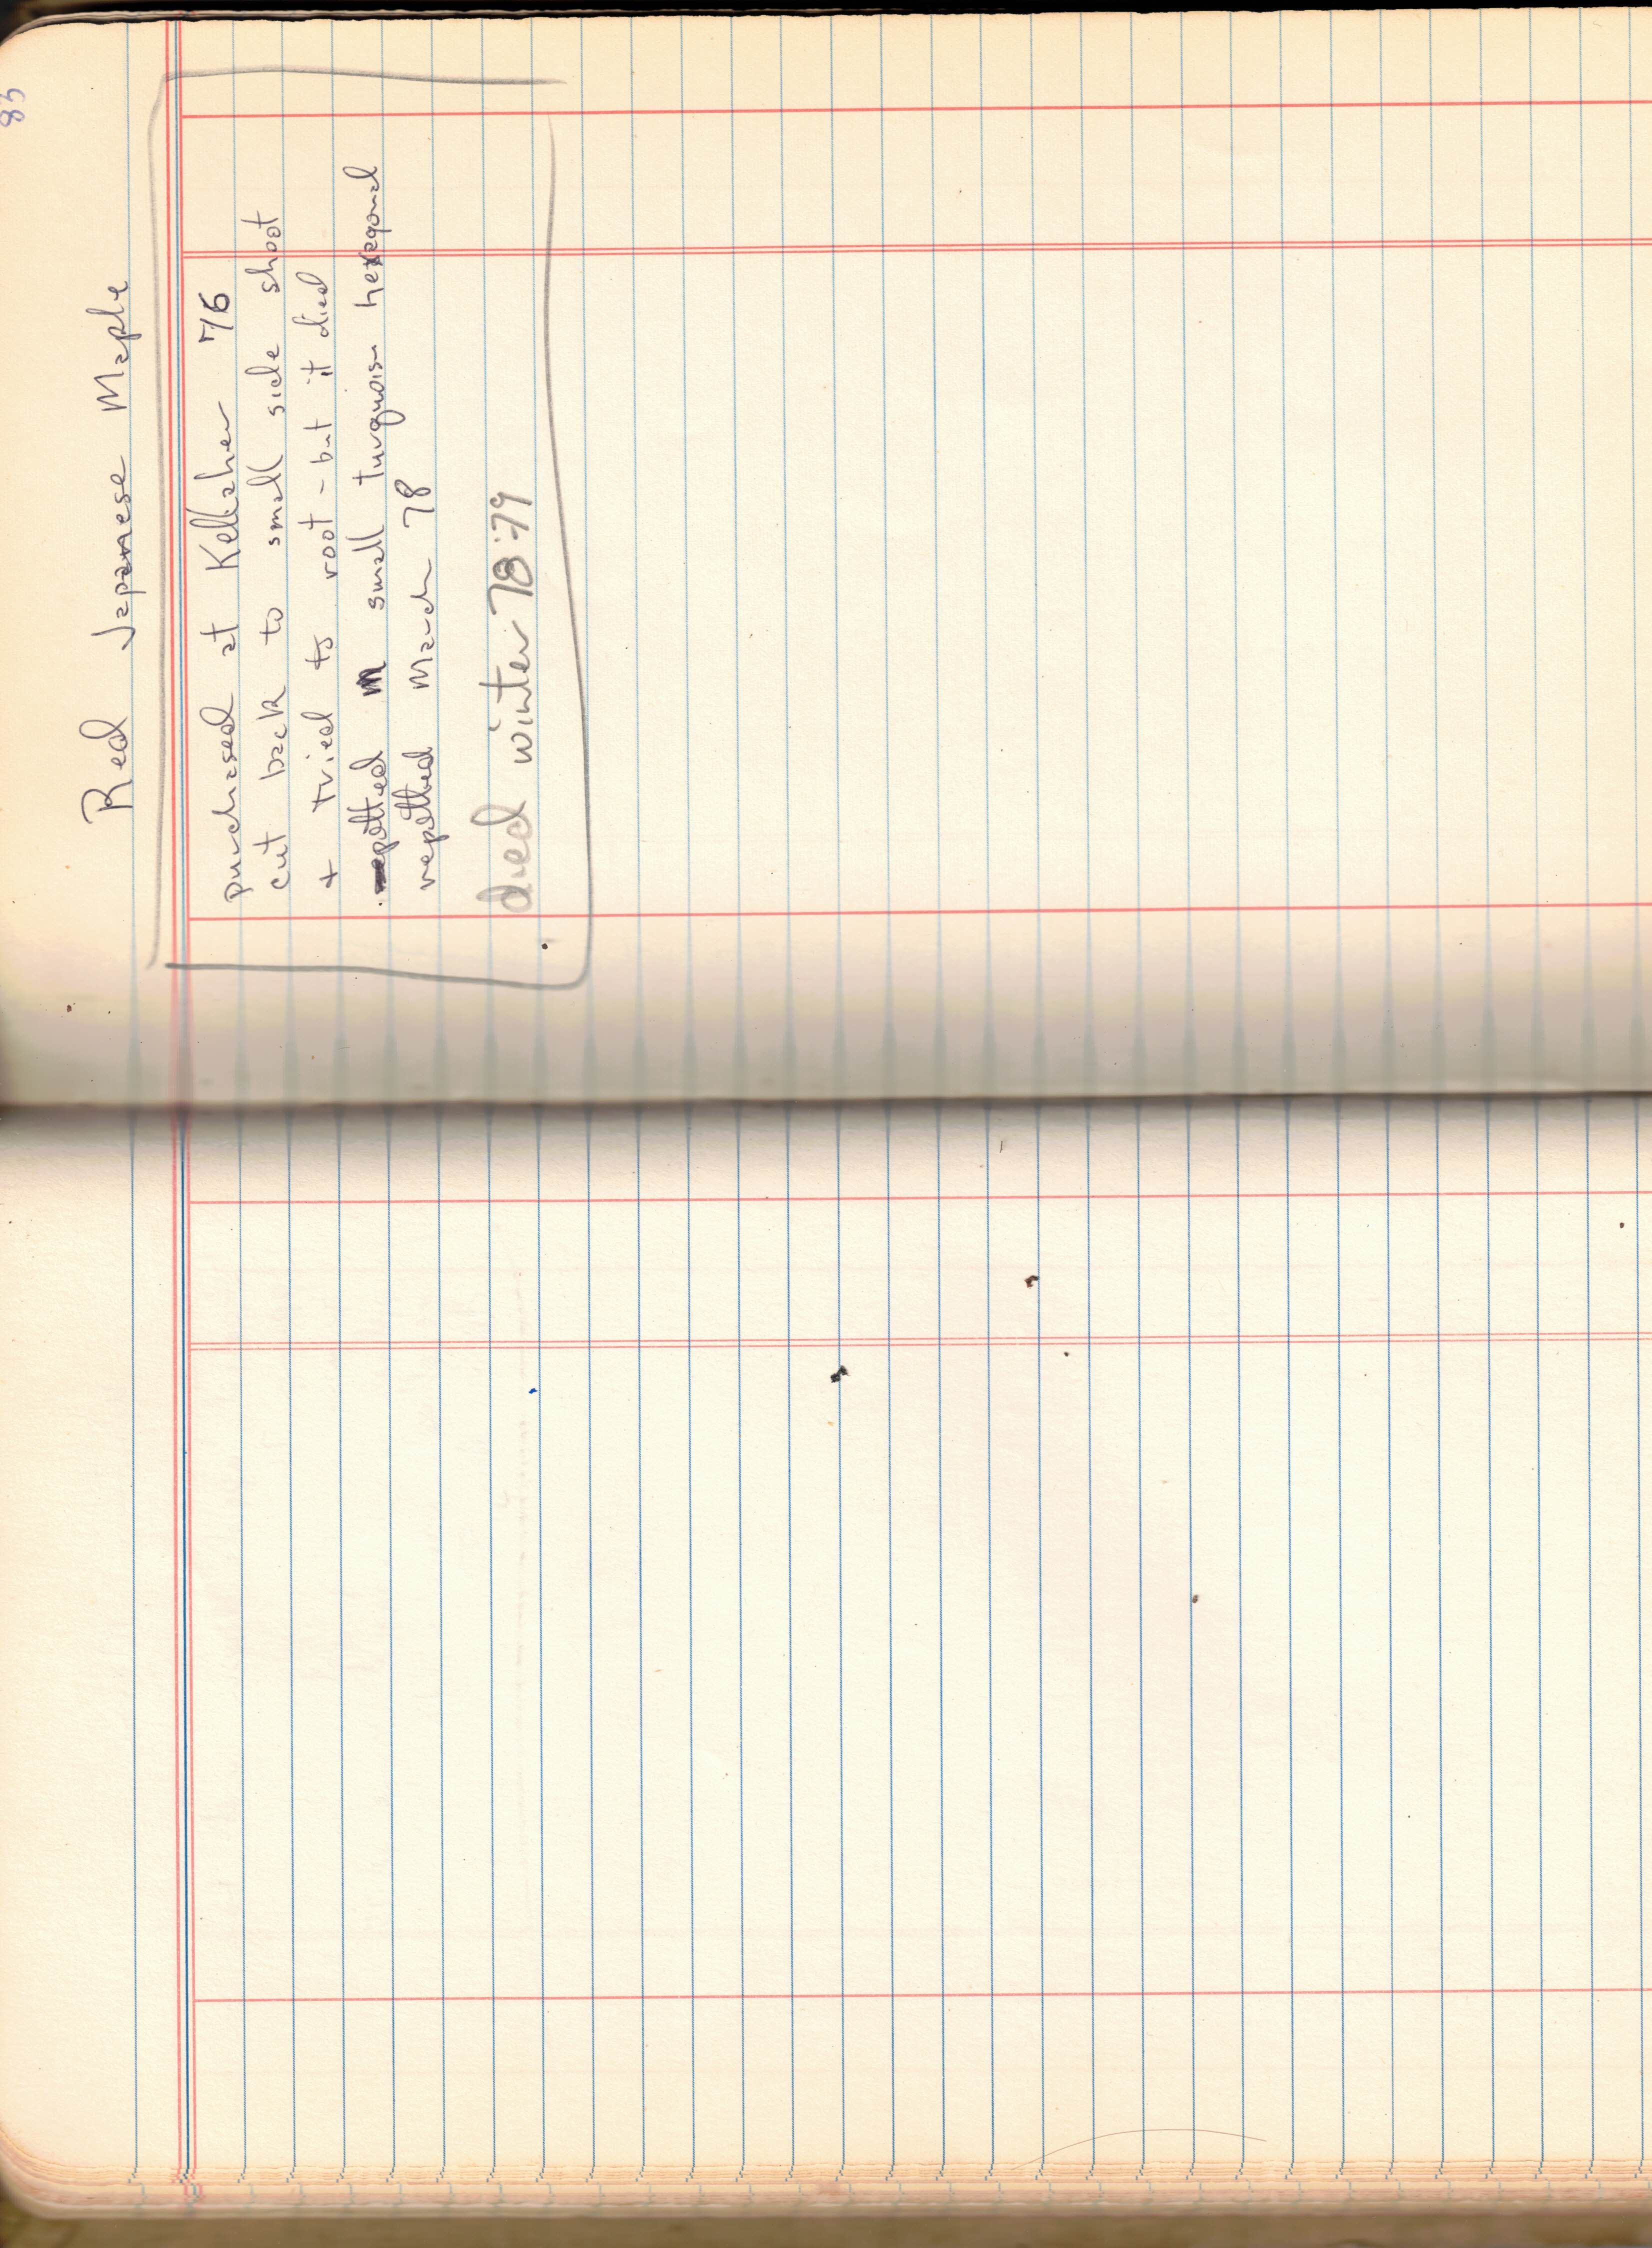 83
Red Japanese Maple
purchased at Kellaher 76
cut back to small side shoot
+ tried to root - but it died
potted in small turquoise hexagonal
repotted March 78
died winter 78-79